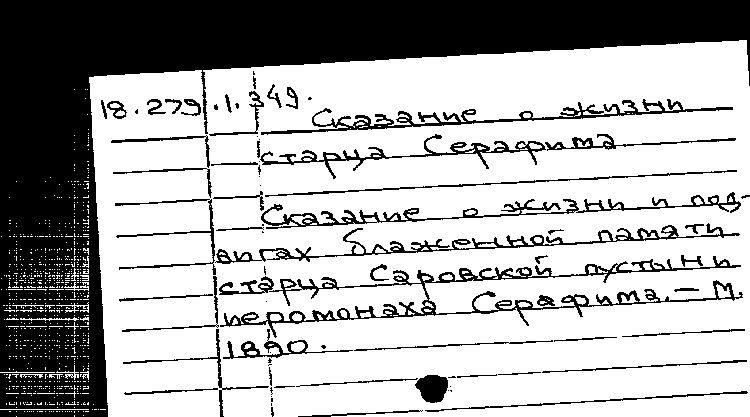 18.279.1.349.
Сказание о жизни
старца Серафима
Сказание о жизни и под-
вигах блаженной памяти
старца Саровской пустыни
иеромонаха Серафима. — М.
1890.